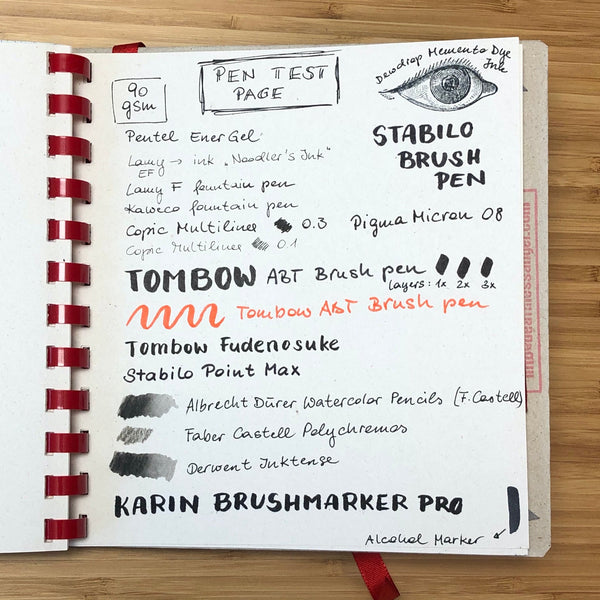 90 gsm
PEN TEST
PAGE
Dewdrop Memento Dye
Ink
STABILO
BRUSH
PEN
Pentel EnerGel
Lamy → ink „Noodler's Ink"
EF
Lamy F fountain pen
Kaweco fountain pen
Copic Multiliner 0.3 Pigma Micron 08
Copic Multiliner 0.1
TOMBOW ABT Brush pen
Layers: 1x 2x 3x
Tombow ABT Brush pen
Tombow Fudenosuke
Stabilo Point Max
Albrecht Dürer Watercolor Pencils (F. Castell)
Faber Castell Polychromos
Derwent Inktense
KARIN BRUSHMARKER PRO
Alcohol Marker